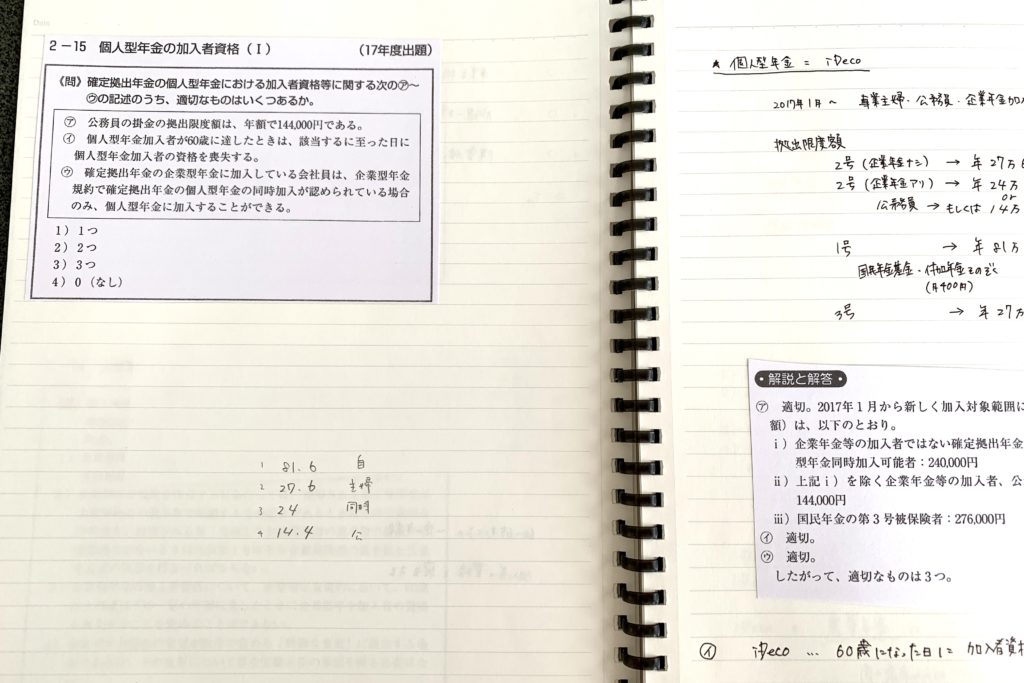 2－15　個人型年金の加入者資格（Ⅰ）　（17年度出題）
《問》確定拠出年金の個人型年金における加入者資格等に関する次の㋐～
㋒の記述のうち、適切なものはいくつあるか。
㋐　公務員の掛金の拠出限度額は、年額で144,000円である。
㋑　個人型年金加入者が60歳に達したときは、該当するに至った日に
個人型年金加入者の資格を喪失する。
㋒　確定拠出年金の企業型年金に加入している会社員は、企業型年金
規約で確定拠出年金の個人型年金の同時加入が認められている場合
のみ、個人型年金に加入することができる。
1）1つ
2）2つ
3）3つ
4）0（なし）
1　81.6　自
2　27.6　主婦
3　24　同時
4　14.4　公
★ 個人型年金 = iDeco
2017年1月～　専業主婦・公務員・企業年金加入
拠出限度額
2号（企業年金ナシ）　→　年27万
2号（企業年金アリ）　→　年24万
or
公務員　→ もしくは 14万
1号　→　年81万
国民年金基金・付加年金をのぞく
（月400円）
3号　→　年27万
・解説と解答・
㋐　適切。2017年1月から新しく加入対象範囲に
額）は、以下のとおり。
ⅰ）企業年金等の加入者ではない確定拠出年金
型年金同時加入可能者：240,000円
ⅱ）上記ⅰ）を除く企業年金等の加入者、公
144,000円
ⅲ）国民年金の第3号被保険者：276,000円
㋑　適切。
㋒　適切。
したがって、適切なものは3つ。
㋑　iDeco … 60歳になった日に 加入者資格